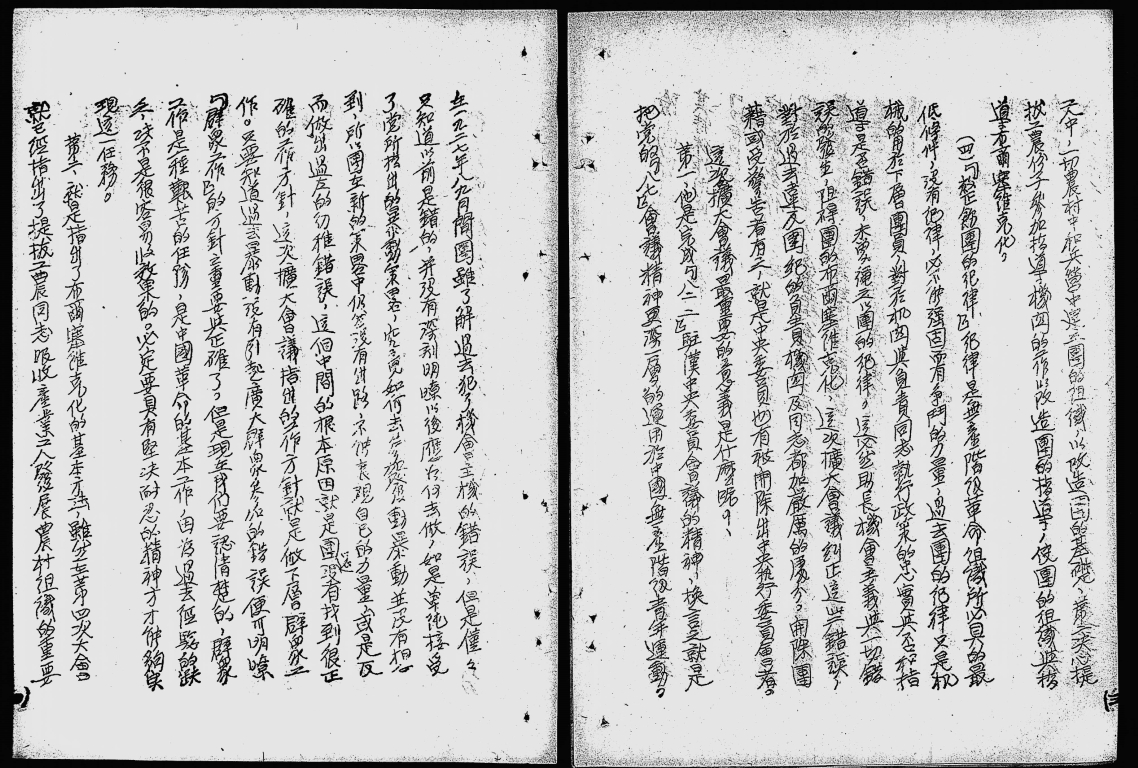 天中，一切農村中和兵營中建立團的組織以改造團的基礎，並大胆提
拔工農份子參加指導機関的工作以改造團的指導，使團的組織與指
導者布爾塞維克化。
（四）「整飭團的紀律」紀律是無產階級革命組織所必具的最
低條件，沒有紀律，必不能强固而有爭鬥的力量，過去團的紀律又是机
械的用於下層團員，對於机関與負責同志執行政策的忠實與否和指
導是否錯誤，未曾繩之以團的紀律，這當然助長機會主義與一切錯
誤的發生，阻碍團的布爾塞維克化，這次擴大會議糾正這些錯誤，
對於過去違反團紀的負責機関及同志都加嚴厲的處分，開除團
籍或受警告者有之，就是中央委員也有被開除出中央執行委員會者。
這次擴大會議最重要的意義是什麼呢？
第一，他是完成「八二二」駐漢中央委員會議的精神，換言之就是
把黨的「八七」會議精神更深一層的運用於中國無產階級青年運動。
在一九二七年八九月間團雖了解過去犯了機會主義的錯誤，但是僅々
只知道以前是錯的，并沒有深刻明瞭以後應如何去做，如是單純接受
了黨所指出的暴動策畧，究竟如何去
動暴動並沒有想
到，所以團在新的策畧中仍然沒有出路，不
自己的力量，或是反
而做出過左的幼稚錯誤，這個中間的根本原因就是團還沒有找到很正
確的工作方針，這次擴大會議指出的工作方針就是做下層群众工
作。只要知道過去暴動沒有引起廣大群众参加的錯誤便可明瞭
「群众工作」的方針之重要與正確了。但是現在我們要認清楚的，群众
工作是種艱苦的任務，是中國革命的基本工作，因為過去經驗的缺
乏，決不是很容易收效果的。必定要具有堅決耐忍的精神方才能夠實
現這一任務。
第二，就是指出了布爾塞維克化的基本方法，雖然在第四次大會
就已經指出了提拔工農同志吸收產業工人發展農村組織的重要